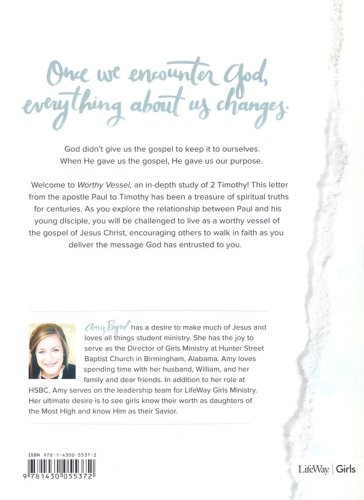 Once we encounter God,
everything about us changes.
God didn't give us the gospel to keep it to ourselves.
When He gave us the gospel, He gave us our purpose.
Welcome to Worthy Vessel, an in-depth study of 2 Timothy! This letter
from the apostle Paul to Timothy has been a treasure of spiritual truths
for centuries. As you explore the relationship between Paul and his
young disciple, you will be challenged to live as a worthy vessel of
the gospel of Jesus Christ, encouraging others to walk in faith as you
deliver the message God has entrusted to you.
Amy Byrd has a desire to make much of Jesus and
loves all things student ministry. She has the joy to
serve as the Director of Girls Ministry at Hunter Street
Baptist Church in Birmingham, Alabama. Amy loves
spending time with her husband, William, and her
family and dear friends. In addition to her role at
HSBC, Amy serves on the leadership team for LifeWay Girls Ministry.
Her ultimate desire is to see girls know their worth as daughters of
the Most High and know Him as their Savior.
ISBN 978-1-4300-5537-2
9 781430 055372
LifeWay | Girls